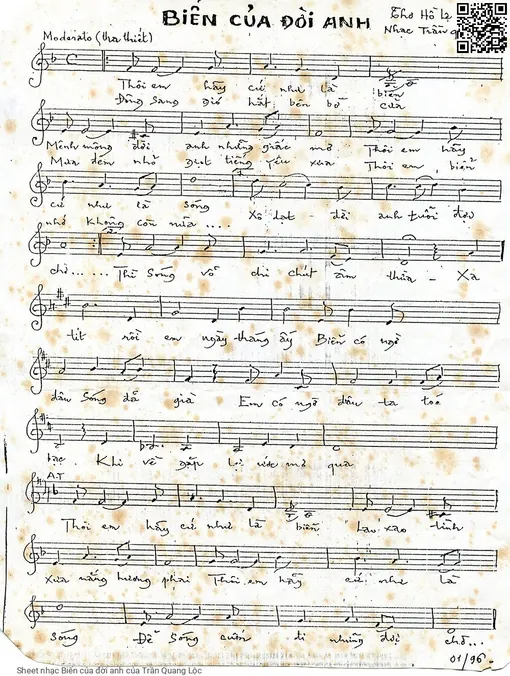 BIỂN CỦA ĐỜI ANH
Thơ Hồ
Nhạc Trần
Moderato (tha thiết)
Thôi em hãy cứ như là biển
Đông sang gió hát bên bờ
Mênh mông đời anh những giấc mơ Thôi em hãy
Mưa đêm nhỏ giọt tiếng yêu xưa Thôi em biển
cứ như là sóng
nhớ không còn nữa .... Xô dạt - đời anh tuổi đợi
chờ...... Thì sóng vỗ chi chút âm thừa - Xa
tít rồi em ngày tháng ấy Biển có ngờ
đâu sóng đã già Em có ngờ đâu ta toé
bạc. Khi về gặp lại ước mơ qua
A.T
Thôi em hãy cứ như là biển Lao xao tình
xưa nắng hương phai Thôi em hãy cứ như là
sóng Để sóng cuốn đi những đợi chờ...
01/96
Sheet nhạc Biển của đời anh của Trần Quang Lộc